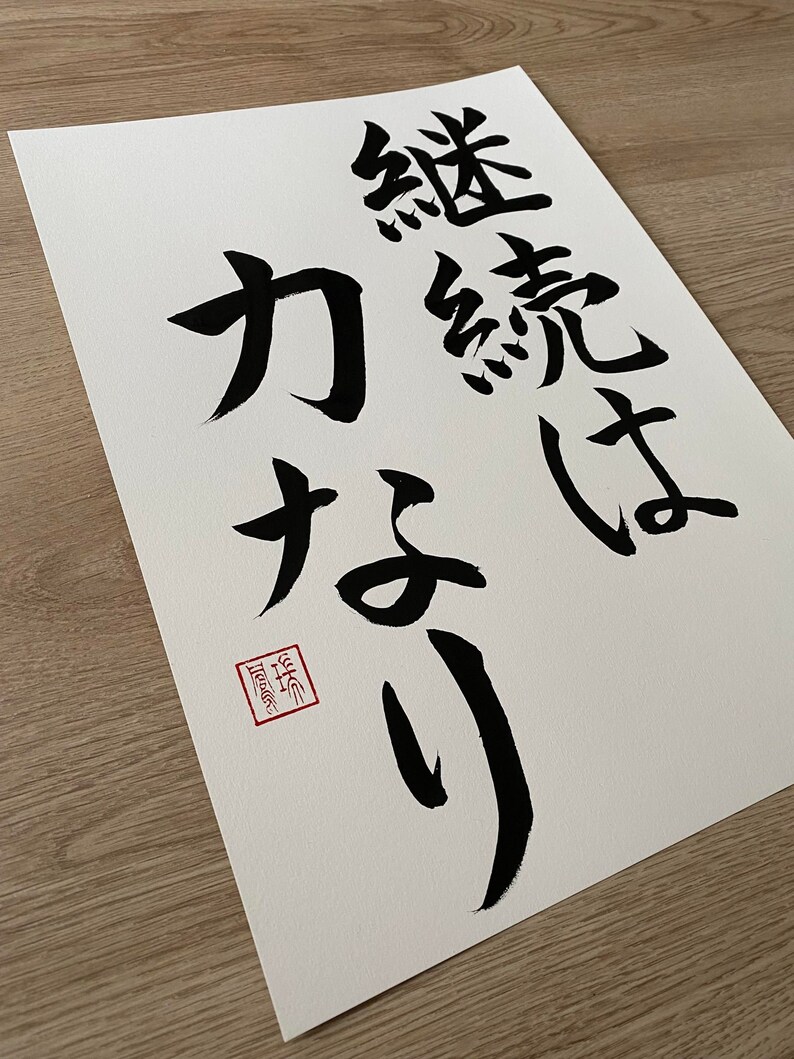 継続は
力なり